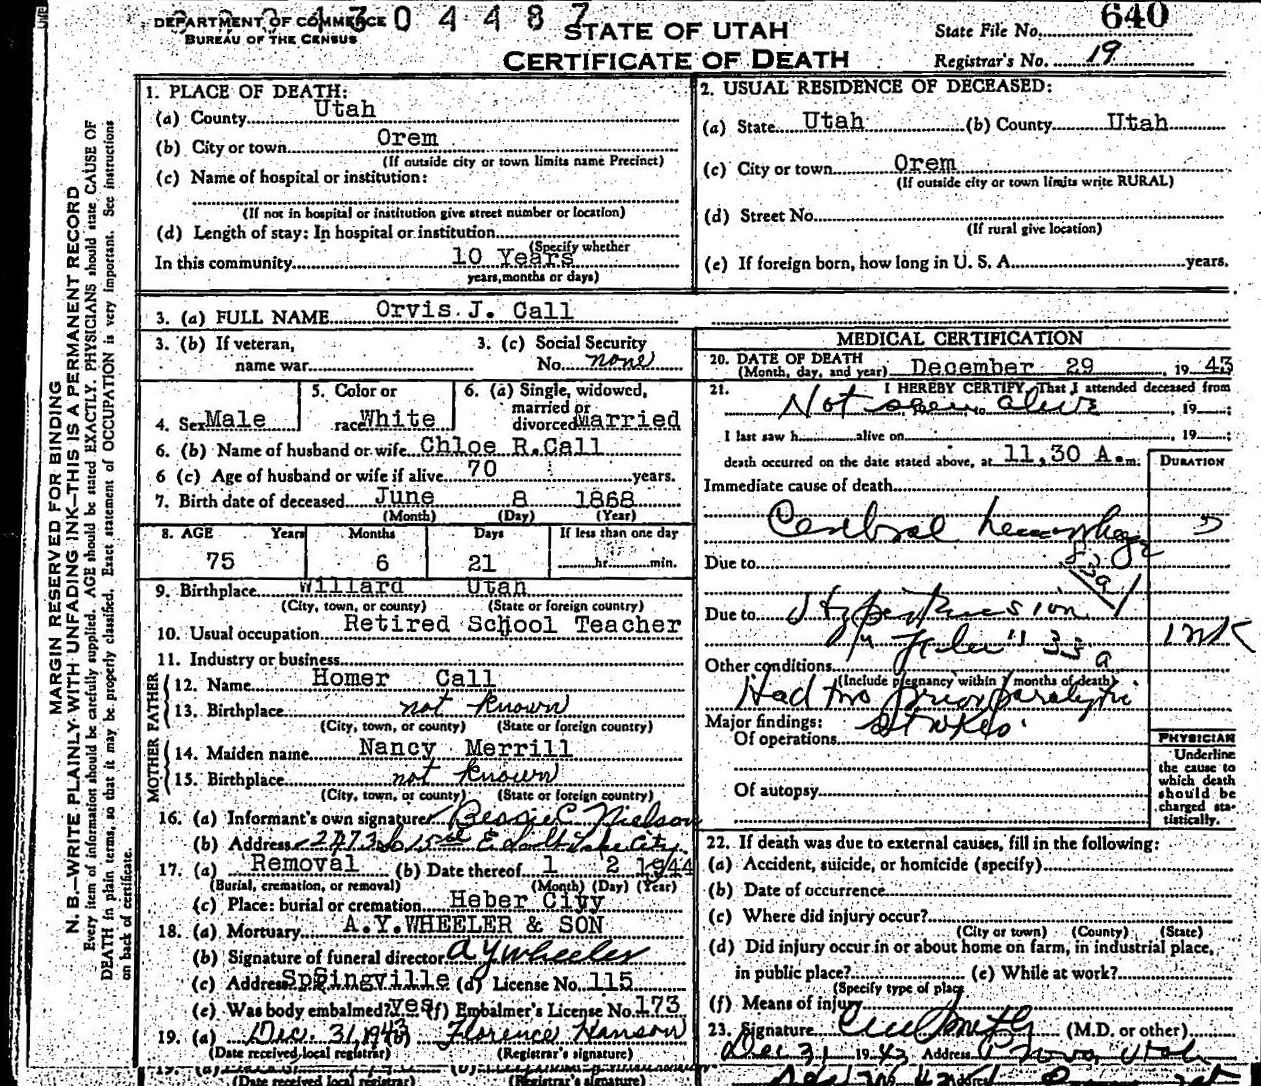 DEPARTMENT OF COMMERCE
BUREAU OF THE CENSUS
304487
STATE OF UTAH
CERTIFICATE OF DEATH
State File No. 640
Registrar's No. 19
MARGIN RESERVED FOR BINDING
N. B.—WRITE PLAINLY WITH UNFADING INK—THIS IS A PERMANENT RECORD
Every item of information should be carefully supplied. AGE should be stated EXACTLY. PHYSICIANS should state CAUSE OF
DEATH in plain terms, so that it may be properly classified. Exact statement of OCCUPATION is very important. See instructions
on back of certificate.
1. PLACE OF DEATH:
(a) County Utah
(b) City or town Orem
(If outside city or town limits name Precinct)
(c) Name of hospital or institution:
(If not in hospital or institution give street number or location)
(d) Length of stay: In hospital or institution
(Specify whether
In this community 10 Years
years, months or days)
2. USUAL RESIDENCE OF DECEASED:
(a) State Utah (b) County Utah
(c) City or town Orem
(If outside city or town limits write RURAL)
(d) Street No.
(If rural give location)
(e) If foreign born, how long in U. S. A years.
3. (a) FULL NAME Orvis J. Call
3. (b) If veteran,
name war
3. (c) Social Security
No. none
4. Sex Male
5. Color or
race White
6. (a) Single, widowed,
married or
divorced Married
6. (b) Name of husband or wife Chloe R. Call
6 (c) Age of husband or wife if alive 70 years.
7. Birth date of deceased June 8 1868
(Month) (Day) (Year)
8. AGE Years Months Days If less than one day
75 6 21 hr. min.
9. Birthplace Willard Utah
(City, town, or county) (State or foreign country)
10. Usual occupation Retired School Teacher
11. Industry or business
FATHER
12. Name Homer Call
13. Birthplace not known
(City, town, or county) (State or foreign country)
MOTHER
14. Maiden name Nancy Merrill
15. Birthplace not known
(City, town, or county) (State or foreign country)
16. (a) Informant's own signature Bessie C Nielson
(b) Address 2773 So 15th E. Salt Lake City.
17. (a) Removal (b) Date thereof 1 2 1944
(Burial, cremation, or removal) (Month) (Day) (Year)
(c) Place: burial or cremation Heber City
18. (a) Mortuary A.Y. WHEELER & SON
(b) Signature of funeral director A Y Wheeler
(c) Address Springville (d) License No. 115
(e) Was body embalmed? yes (f) Embalmer's License No. 173
19. (a) Dec. 31, 1943 Florence Hanson
(Date received local registrar) (Registrar's signature)
(Date received local registrar) (Registrar's signature)
MEDICAL CERTIFICATION
20. DATE OF DEATH
(Month, day, and year) December 29, 1943
21. I HEREBY CERTIFY, That I attended deceased from
Not seen alive, 19 ;
I last saw h alive on , 19 ;
death occurred on the date stated above, at 11,30 A.m.
DURATION
Immediate cause of death
Cerebral hemorrhage
83a
Due to
Due to Hypertension
33a
Other conditions
(Include pregnancy within months of death)
Had two prior paralytic
strokes
Major findings:
Of operations
Of autopsy
PHYSICIAN
Underline
the cause to
which death
should be
charged sta-
tistically.
22. If death was due to external causes, fill in the following:
(a) Accident, suicide, or homicide (specify)
(b) Date of occurrence
(c) Where did injury occur?
(City or town) (County) (State)
(d) Did injury occur in or about home on farm, in industrial place,
in public place? (e) While at work?
(Specify type of place
(f) Means of injury
23. Signature (M.D. or other)
Dec 31 1943 Address Provo, Utah